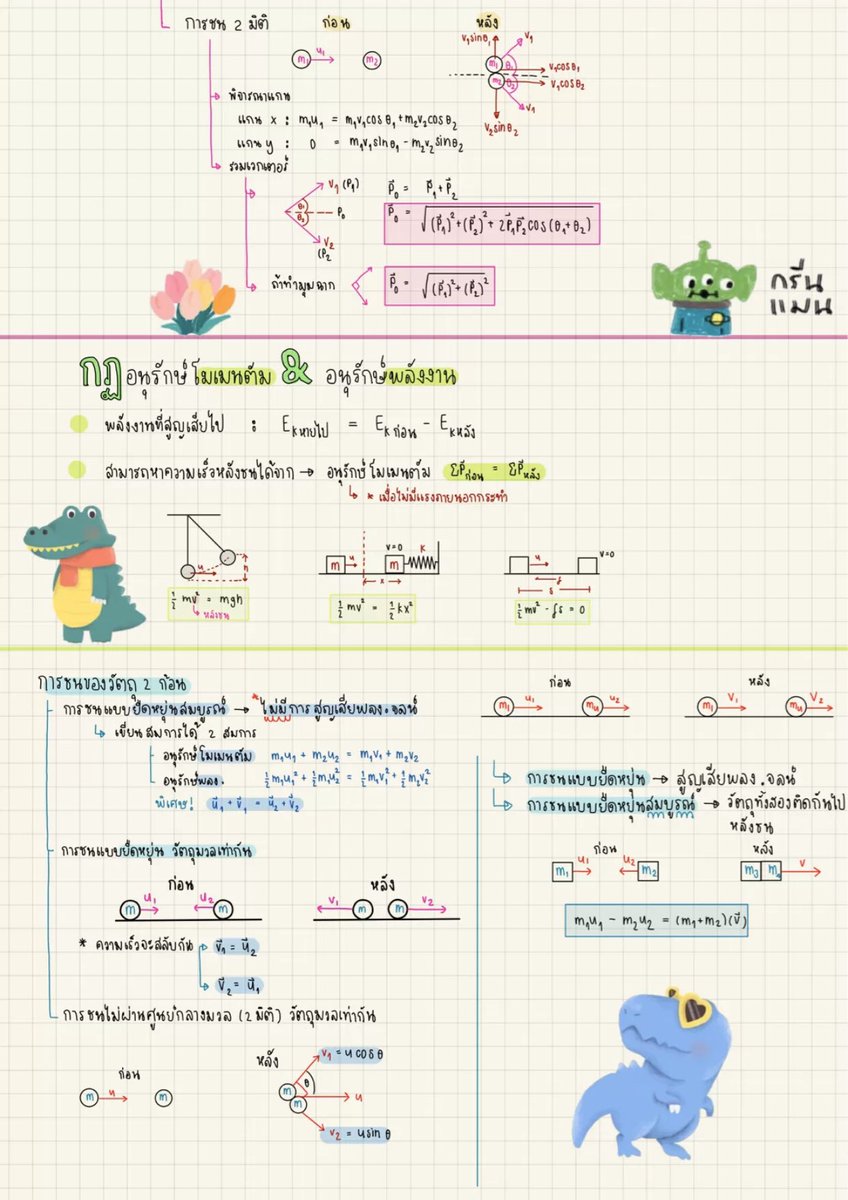 การชน 2 มิติ
ก่อน
หลัง
m₁ u₁ m₂
v₁sinθ₁ v₁
m₁ θ₁ v₁cosθ₁
m₂ θ₂ v₁cosθ₂
v₁
v₂sinθ₂
พิจารณาแกน
แกน x : m₁u₁ = m₁v₁cosθ₁+m₂v₂cosθ₂
แกน y : 0 = m₁v₁sinθ₁-m₂v₂sinθ₂
รวมเวกเตอร์
v₁ (P₁)
θ₁ P₀
θ₂
v₂
(P₂
P⃗₀ = P⃗₁+P⃗₂
P⃗₀ = √(P⃗₁)²+(P⃗₂)²+2P⃗₁P⃗₂cos(θ₁+θ₂)
ถ้าทำมุมฉาก
P⃗₀ = √(P⃗₁)²+(P⃗₂)²
กรีน
แมน
กฏอนุรักษ์โมเมนตัม & อนุรักษ์พลังงาน
พลังงานที่สูญเสียไป : Eₖหายไป = Eₖก่อน - Eₖหลัง
สามารถหาความเร็วหลังชนได้จาก → อนุรักษ์โมเมนตัม ΣP⃗ก่อน = ΣP⃗หลัง
* เมื่อไม่มีแรงภายนอกกระทำ
u h
½mv² = mgh
หลังชน
m u v=0 m K
x
½mv² = ½kx²
u v=0
f
s
½mv² - fs = 0
การชนของวัตถุ 2 ก้อน
การชนแบบยืดหยุ่นสมบูรณ์ → *ไม่มีการสูญเสียพลง.จลน์
เขียนสมการได้ 2 สมการ
อนุรักษ์โมเมนตัม m₁u₁ + m₂u₂ = m₁v₁ + m₂v₂
อนุรักษ์พลง. ½m₁u₁²+½m₁u₂² = ½m₁v₁²+½m₂v₂²
พิเศษ! u⃗₁+v⃗₁ = u⃗₂+v⃗₂
ก่อน
หลัง
m₁ u₁ mu u₂
m₁ V₁ mu V₂
การชนแบบยืดหยุ่น → สูญเสียพลง.จลน์
การชนแบบยืดหยุ่นสมบูรณ์ → วัตถุทั้งสองติดกันไป
หลังชน
ก่อน
หลัง
m₁ u₁ u₂ m₂
v
m₁u₁ - m₂u₂ = (m₁+m₂)(v⃗)
การชนแบบยืดหยุ่น วัตถุมวลเท่ากัน
ก่อน
หลัง
m u₁ u₂ m
v₁ m m v₂
* ความเร็วจะสลับกัน v⃗₁ = u⃗₂
v⃗₂ = u⃗₁
การชนไม่ผ่านศูนย์กลางมวล (2 มิติ) วัตถุมวลเท่ากัน
ก่อน
หลัง
m u m
v₁ = u cosθ
m θ u
m
v₂ = u sinθ